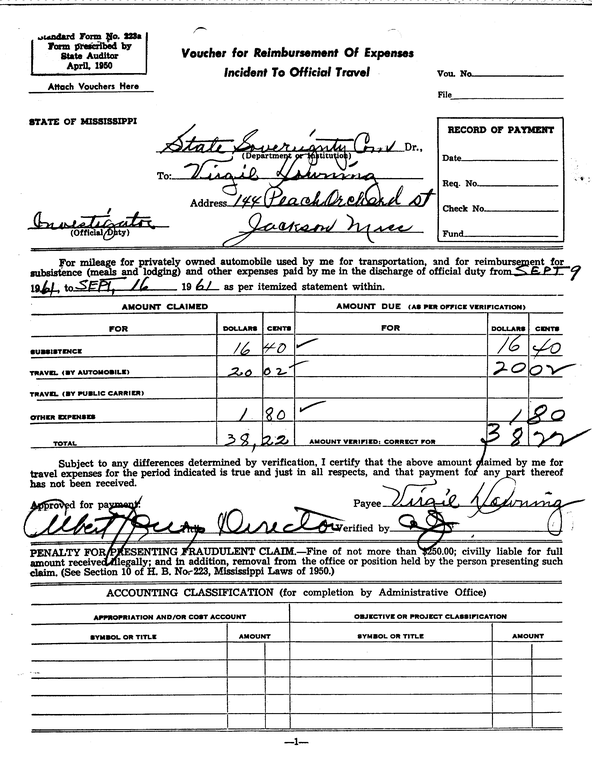 Standard Form No. 223a
Form prescribed by
State Auditor
April, 1950
Attach Vouchers Here
Voucher for Reimbursement Of Expenses
Incident To Official Travel
Vou. No.
File
STATE OF MISSISSIPPI
State Sovereignty Com Dr.,
(Department or Institution)
To: Virgil Downing
Address 144 Peach Orchard St
Jackson Miss
Investigator
(Official Duty)
RECORD OF PAYMENT
Date
Req. No.
Check No.
Fund
For mileage for privately owned automobile used by me for transportation, and for reimbursement for
subsistence (meals and lodging) and other expenses paid by me in the discharge of official duty from SEPT 9
1961, to SEPT, 16 1961 as per itemized statement within.
AMOUNT CLAIMED AMOUNT DUE (AS PER OFFICE VERIFICATION)
FOR DOLLARS CENTS FOR DOLLARS CENTS
SUBSISTENCE 16 40 16 40
TRAVEL (BY AUTOMOBILE) 20 02 20 02
TRAVEL (BY PUBLIC CARRIER)
OTHER EXPENSES 1 80 1 80
TOTAL 38,22 AMOUNT VERIFIED: CORRECT FOR 38 22
Subject to any differences determined by verification, I certify that the above amount claimed by me for
travel expenses for the period indicated is true and just in all respects, and that payment for any part thereof
has not been received.
Approved for payment. Payee Virgil Downing
Albert Jones Director Verified by
PENALTY FOR PRESENTING FRAUDULENT CLAIM.—Fine of not more than $250.00; civilly liable for full
amount received illegally; and in addition, removal from the office or position held by the person presenting such
claim. (See Section 10 of H. B. No. 223, Mississippi Laws of 1950.)
ACCOUNTING CLASSIFICATION (for completion by Administrative Office)
APPROPRIATION AND/OR COST ACCOUNT OBJECTIVE OR PROJECT CLASSIFICATION
SYMBOL OR TITLE AMOUNT SYMBOL OR TITLE AMOUNT
—1—